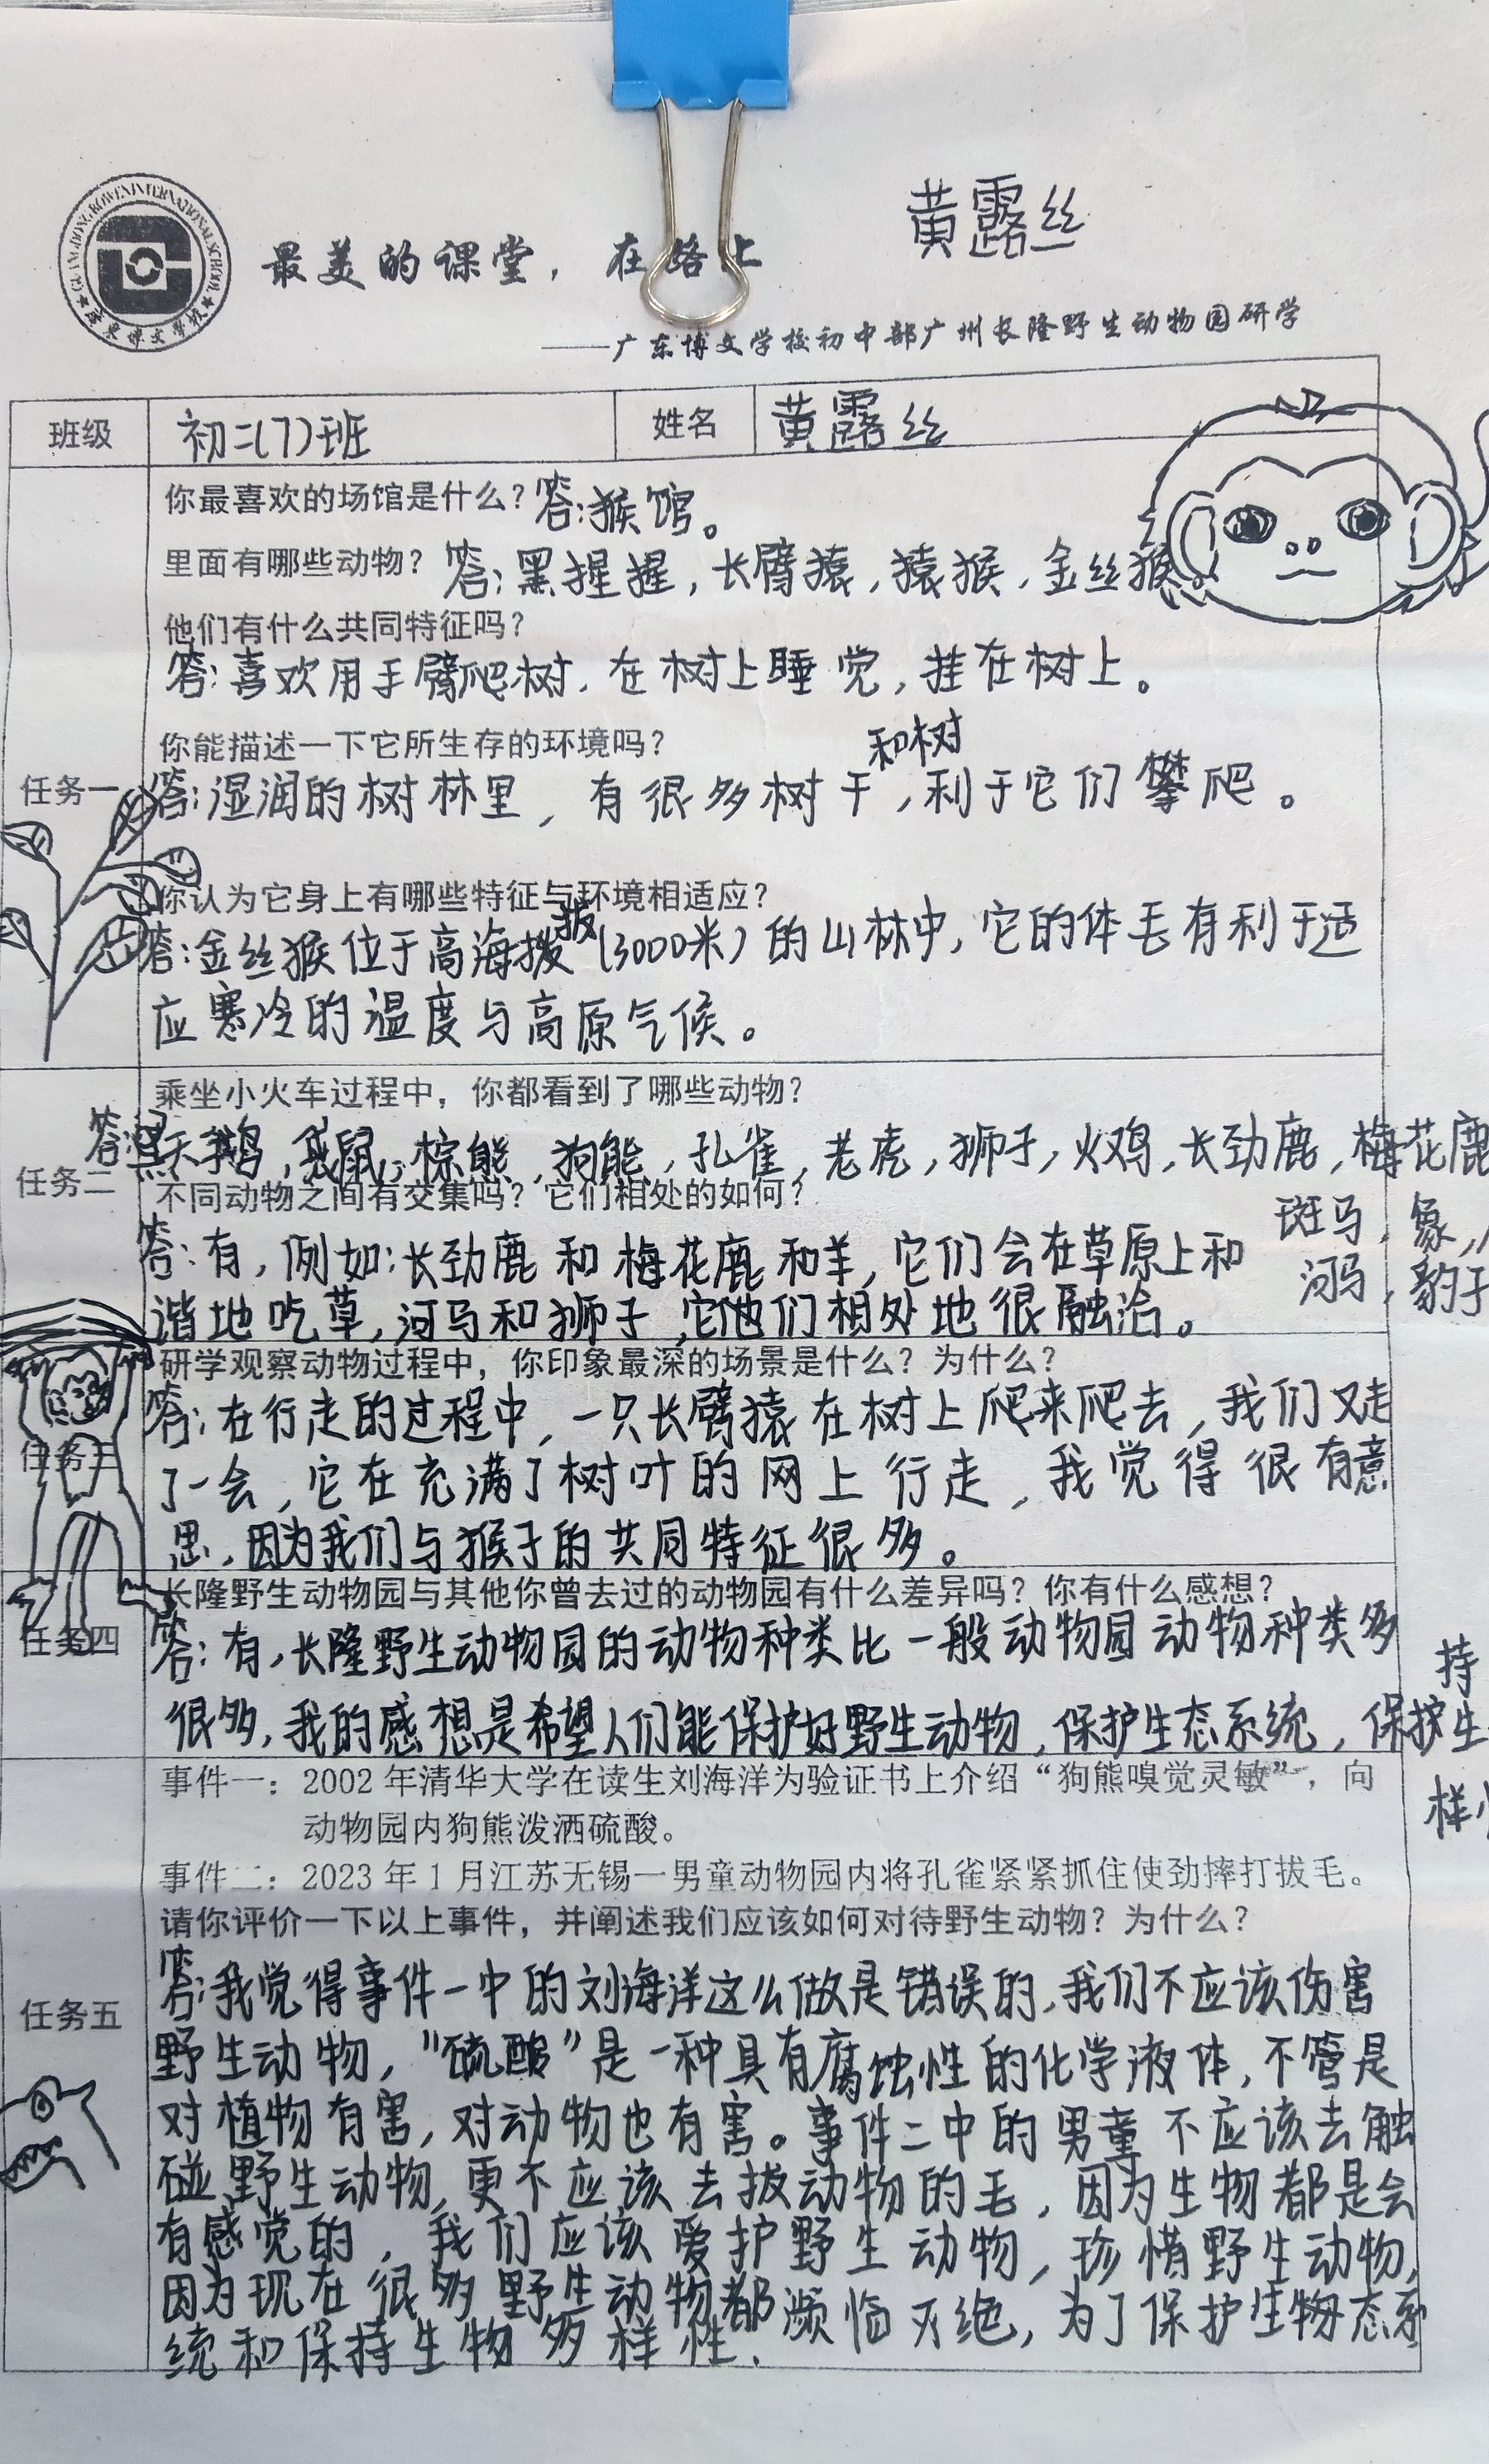 GUANGDONG BOWEN INTERNATIONAL SCHOOL
广东博文学校
黄露丝
最美的课堂，在路上
——广东博文学校初中部广州长隆野生动物园研学
班级 初二(7)班 姓名 黄露丝
你最喜欢的场馆是什么？答:猴馆。
里面有哪些动物？答:黑猩猩,长臂猿,猿猴,金丝猴。
他们有什么共同特征吗？
答:喜欢用手臂爬树,在树上睡觉,挂在树上。
你能描述一下它所生存的环境吗？
和树
任务一
答:湿润的树林里,有很多树干,利于它们攀爬。
你认为它身上有哪些特征与环境相适应？
拔
答:金丝猴位于高海拨(3000米)的山林中,它的体毛有利于适
应寒冷的温度与高原气候。
乘坐小火车过程中，你都看到了哪些动物？
答:黑天鹅,袋鼠,棕熊,狗熊,孔雀,老虎,狮子,火鸡,长劲鹿,梅花鹿
任务二
不同动物之间有交集吗？它们相处的如何？
斑马,象,
答:有,例如:长劲鹿和梅花鹿和羊,它们会在草原上和
河马,豹子
谐地吃草,河马和狮子,它他们相处地很融洽。
研学观察动物过程中，你印象最深的场景是什么？为什么？
答:在行走的过程中,一只长臂猿在树上爬来爬去,我们又走
任务三
了一会,它在充满了树叶的网上行走,我觉得很有意
思,因为我们与猴子的共同特征很多。
长隆野生动物园与其他你曾去过的动物园有什么差异吗？你有什么感想？
任务四
答:有,长隆野生动物园的动物种类比一般动物园动物种类多
持
很多,我的感想是希望人们能保护好野生动物,保护生态系统,保护生
样
事件一：2002 年清华大学在读生刘海洋为验证书上介绍“狗熊嗅觉灵敏”，向
动物园内狗熊泼洒硫酸。
事件二：2023 年 1 月江苏无锡一男童动物园内将孔雀紧紧抓住使劲摔打拔毛。
请你评价一下以上事件，并阐述我们应该如何对待野生动物？为什么？
任务五
答:我觉得事件一中的刘海洋这么做是错误的,我们不应该伤害
野生动物,“硫酸”是一种具有腐蚀性的化学液体,不管是
对植物有害,对动物也有害。事件二中的男童不应该去触
碰野生动物,更不应该去拔动物的毛,因为生物都是会
有感觉的,我们应该爱护野生动物,珍惜野生动物,
因为现在很多野生动物都濒临灭绝,为了保护生物态系
统和保持生物多样性.